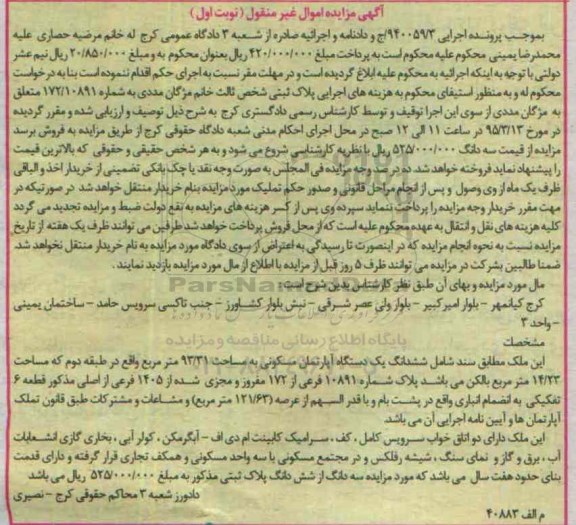 آگهی مزایده اموال غیر منقول ( نوبت اول )
بموجب پرونده اجرایی ۹۴۰۰۵۹/۳/ج و دادنامه و اجرائیه صادره از شعبه ۳ دادگاه عمومی کرج له خانم مرضیه حصاری علیه
محمدرضا یمینی محکوم علیه محکوم است به پرداخت مبلغ ۴۲۰/۰۰۰/۰۰۰ ریال بعنوان محکوم به و مبلغ ۲۰/۸۵۰/۰۰۰ ریال نیم عشر
دولتی با توجه به اینکه اجرائیه به محکوم علیه ابلاغ گردیده است و در مهلت مقر نسبت به اجرای حکم اقدام ننموده است بنا به درخواست
محکوم له و به منظور استیفای محکوم به هزینه های اجرایی پلاک ثبتی شخص ثالث خانم مژگان مددی به شماره ۱۷۲/۱۰۸۹۱ متعلق
به مژگان مددی از سوی این اجرا توقیف و توسط کارشناس رسمی دادگستری کرج به شرح ذیل توصیف و ارزیابی شده و مقرر گردیده
در مورخ ۹۵/۳/۱۲ در ساعت ۱۱ الی ۱۲ صبح در محل اجرای احکام مدنی شعبه دادگاه حقوقی کرج از طریق مزایده به فروش برسد
مزایده از قیمت سه دانگ ۵۲۵/۰۰۰/۰۰۰ ریال با نظریه کارشناسی شروع می شود و به هر شخص حقیقی و حقوقی که بالاترین قیمت
را پیشنهاد نماید فروخته خواهد شد. ده درصد وجه مزایده فی المجلس به صورت وجه نقد یا چک بانکی تضمینی از خریدار اخذ و الباقی
ظرف یک ماه از وی وصول و پس از انجام مراحل قانونی و صدور حکم تملیک مورد مزایده بنام خریدار منتقل خواهد شد در صورتیکه در
مهت مقرر خریدار وجه مزایده را پرداخت ننماید سپرده وی پس از کسر هزینه های مزایده به نفع دولت ضبط و مزایده تجدید می گردد
کلیه هزینه های نقل و انتقال به عهده محکوم علیه است که از محل فروش پرداخت خواهد شد طرفین می توانند ظرف یک هفته از تاریخ
مزایده نسبت به نحوه انجام مزایده که در اینصورت تا رسیدگی به اعتراض از سوی دادگاه مورد مزایده به نام خریدار منتقل نخواهد شد.
ضمنا طالبین بشرکت در مزایده می توانند ظرف ۵ روز قبل از مزایده با اطلاع از مال مورد مزایده بازدید نمایند .
مال مورد مزایده و بهای آن طبق نظر کارشناس بدین شرح است:
کرج کیانمهر – بلوار امیر کبیر – بلوار ولی عصر شرقی – نبش بلوار کشاورز – جنب تاکسی سرویس حامد – ساختمان یمینی
– واحد ۳
مشخصات
این ملک مطابق سند شامل ششدانگ یک دستگاه آپارتمان مسکونی به مساحت ۹۳/۳۱ متر مربع واقع در طبقه دوم که مساحت
۱۴/۲۳ متر مربع بالکن می باشد پلاک شماره ۱۰۸۹۱ فرعی از ۱۷۲ مفروز و مجزی شده از ۱۴۰۵ فرعی از اصلی مذکور قطعه ۶
تفکیکی به انضمام انباری واقع در پشت بام و با قدر السهم از عرصه (۱۲۱/۶۳ متر مربع) و مشاعات و مشترکات طبق قانون تملک
آپارتمان ها و آیین نامه اجرایی آن می باشد.
این ملک دارای دو اتاق خواب سرویس کامل ، کف ، سرامیک کابینت ام دی اف – آبگرمکن ، کولر آبی ، بخاری گازی انشعابات
آب ، برق و گاز و نمای سنگ ، شیشه رفلکس و در مجتمع مسکونی با سه واحد مسکونی و همکف تجاری قرار گرفته و دارای قدمت
بنای حدود هفت سال می باشد که مورد مزایده سه دانگ از شش دانگ پلاک ثبتی مذکور به مبلغ ۵۲۵/۰۰۰/۰۰۰ ریال می باشد
دادورز شعبه ۳ محاکم حقوقی کرج – نصیری
م الف ۴۰۸۸۳